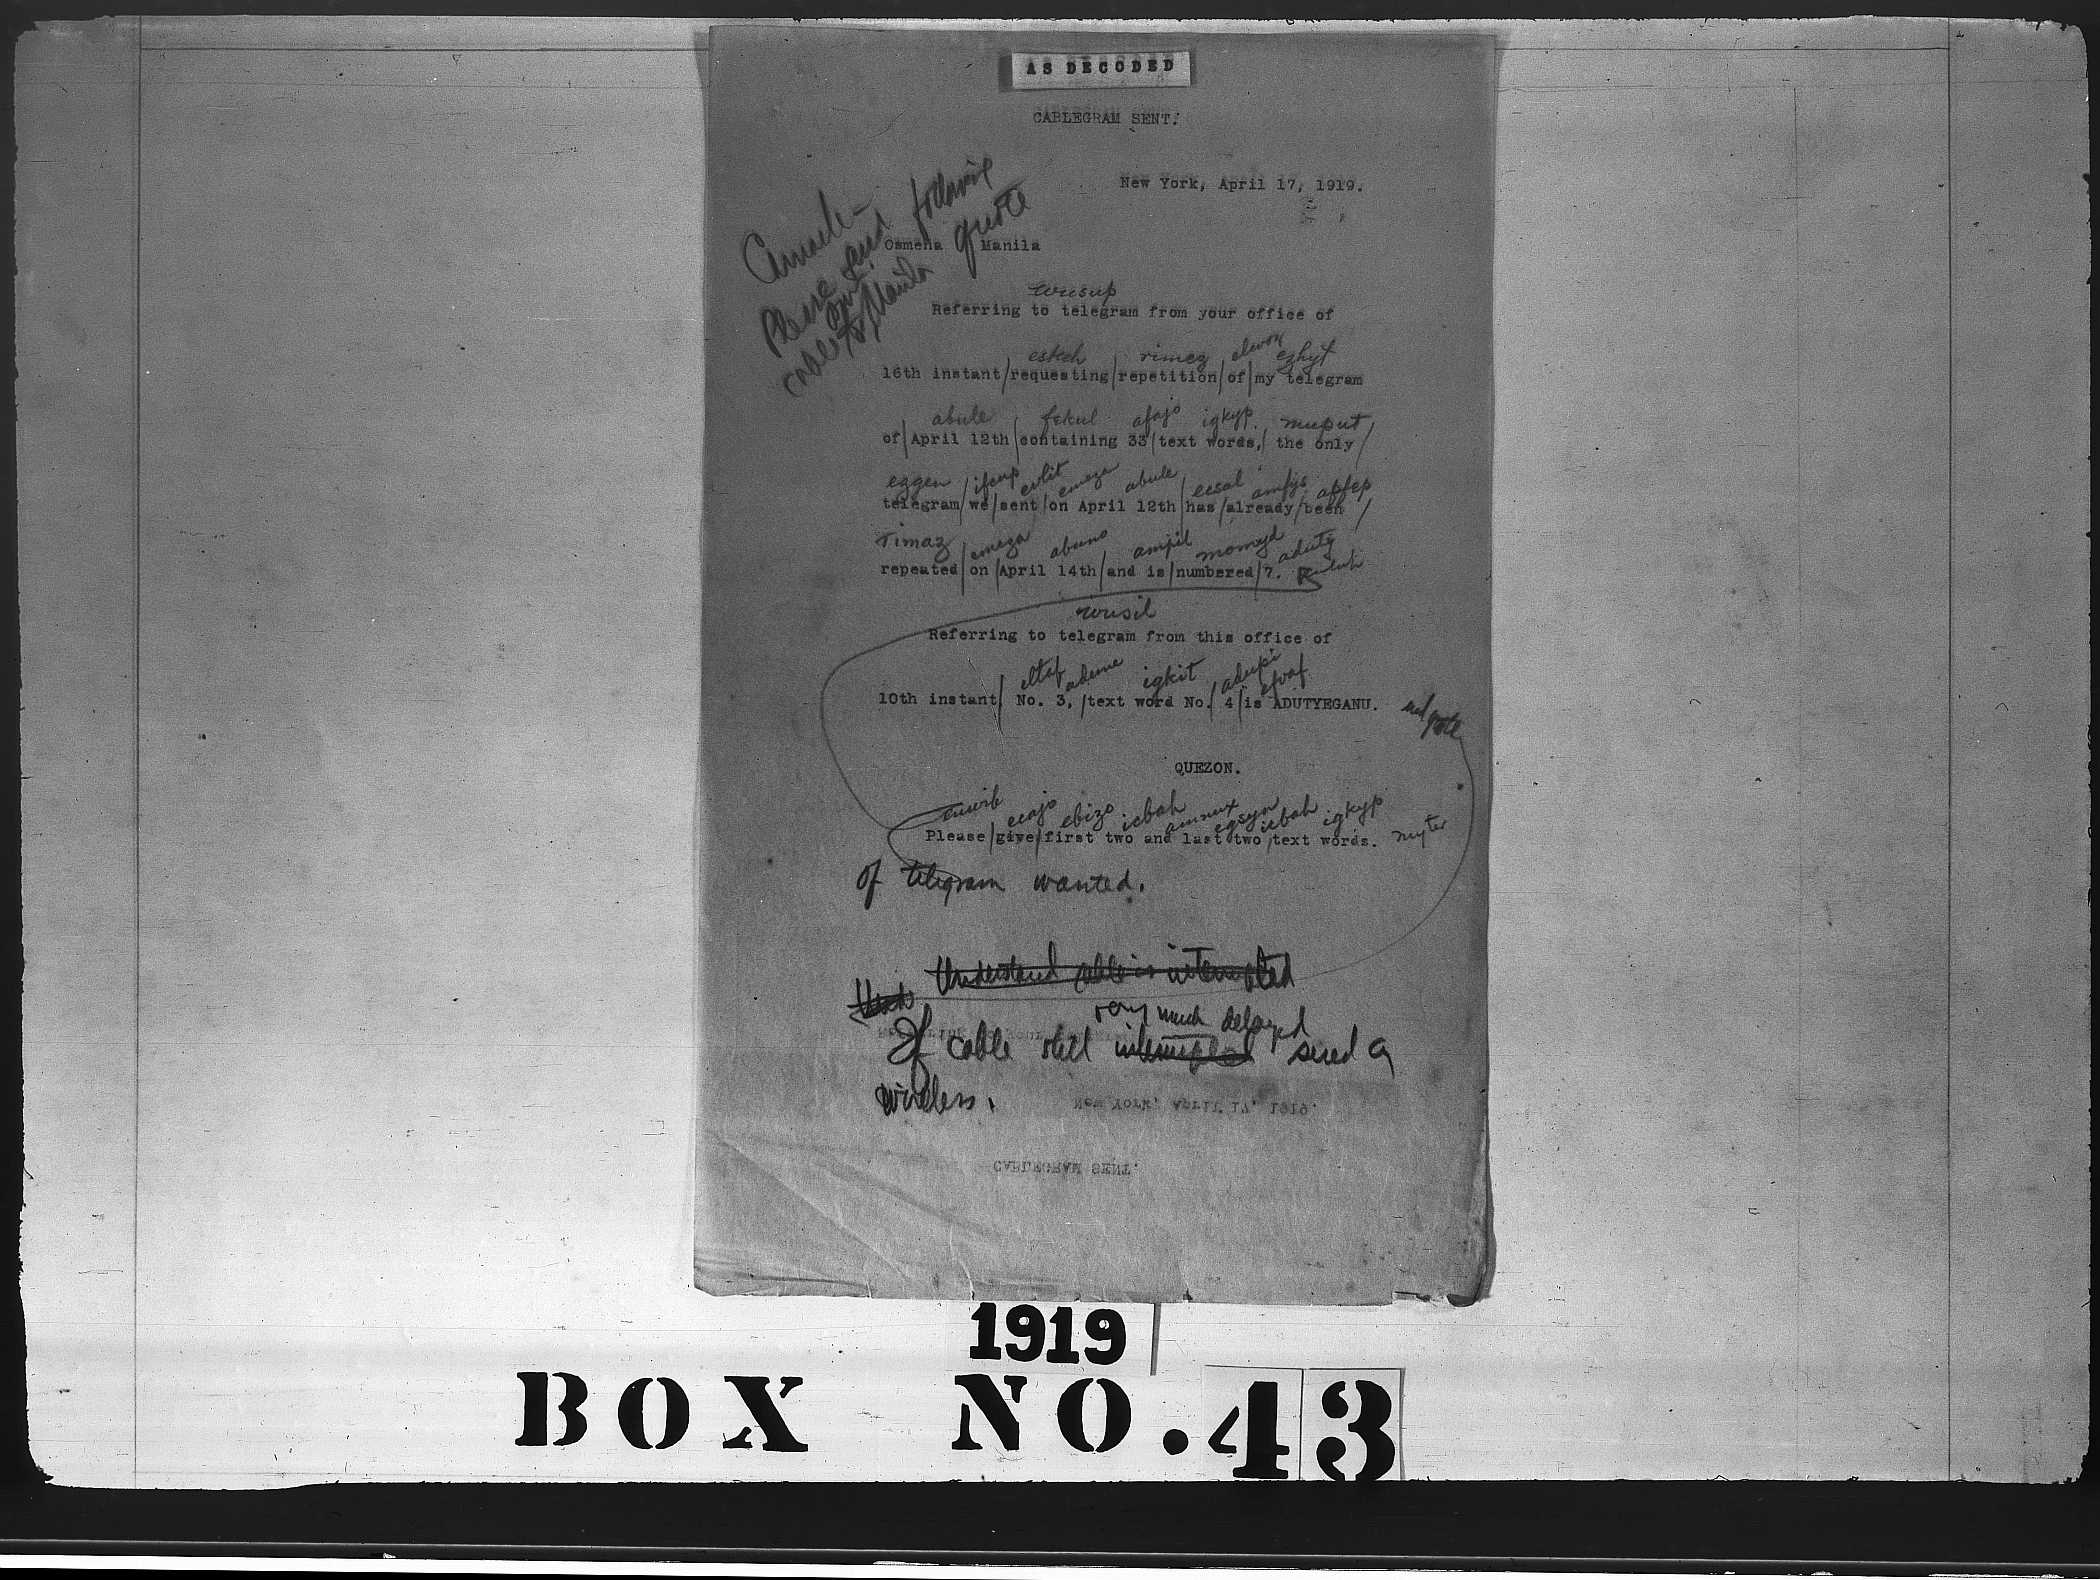 AS DECODED
CABLEGRAM SENT.
New York, April 17, 1919.
Please send following
cable to Manila quote
Osmeña Manila
wusup
Referring to telegram from your office of
esteh rimez elwoy ezhyt
16th instant/requesting/repetition/of/my telegram
abule fekul afajo igkyp. muput
of/April 12th/containing 33/text words,/the only/
eggen ifcup evlit emeza abule ecsal amfys apfep
telegram/we/sent/on April 12th/has/already/been/
rimaz emeza abuno ampil momyd aduty
repeated/on/April 14th/and is/numbered/7.
wusil
Referring to telegram from this office of
eltaf adume igkit adupi efvaf
10th instant/ No. 3, /text word No./ 4/is ADUTYEGANU.
end quote
QUEZON.
ecajo ebizo icbah amnux egsyn icbah igkyp
Please/give/first two and last two/text words. myter
of telegram wanted.
Understand cable is interrupted
very much delayed
If cable still interrupted send a
wireless.
New York, April 17, 1919.
CABLEGRAM SENT.
1919
BOX NO. 43